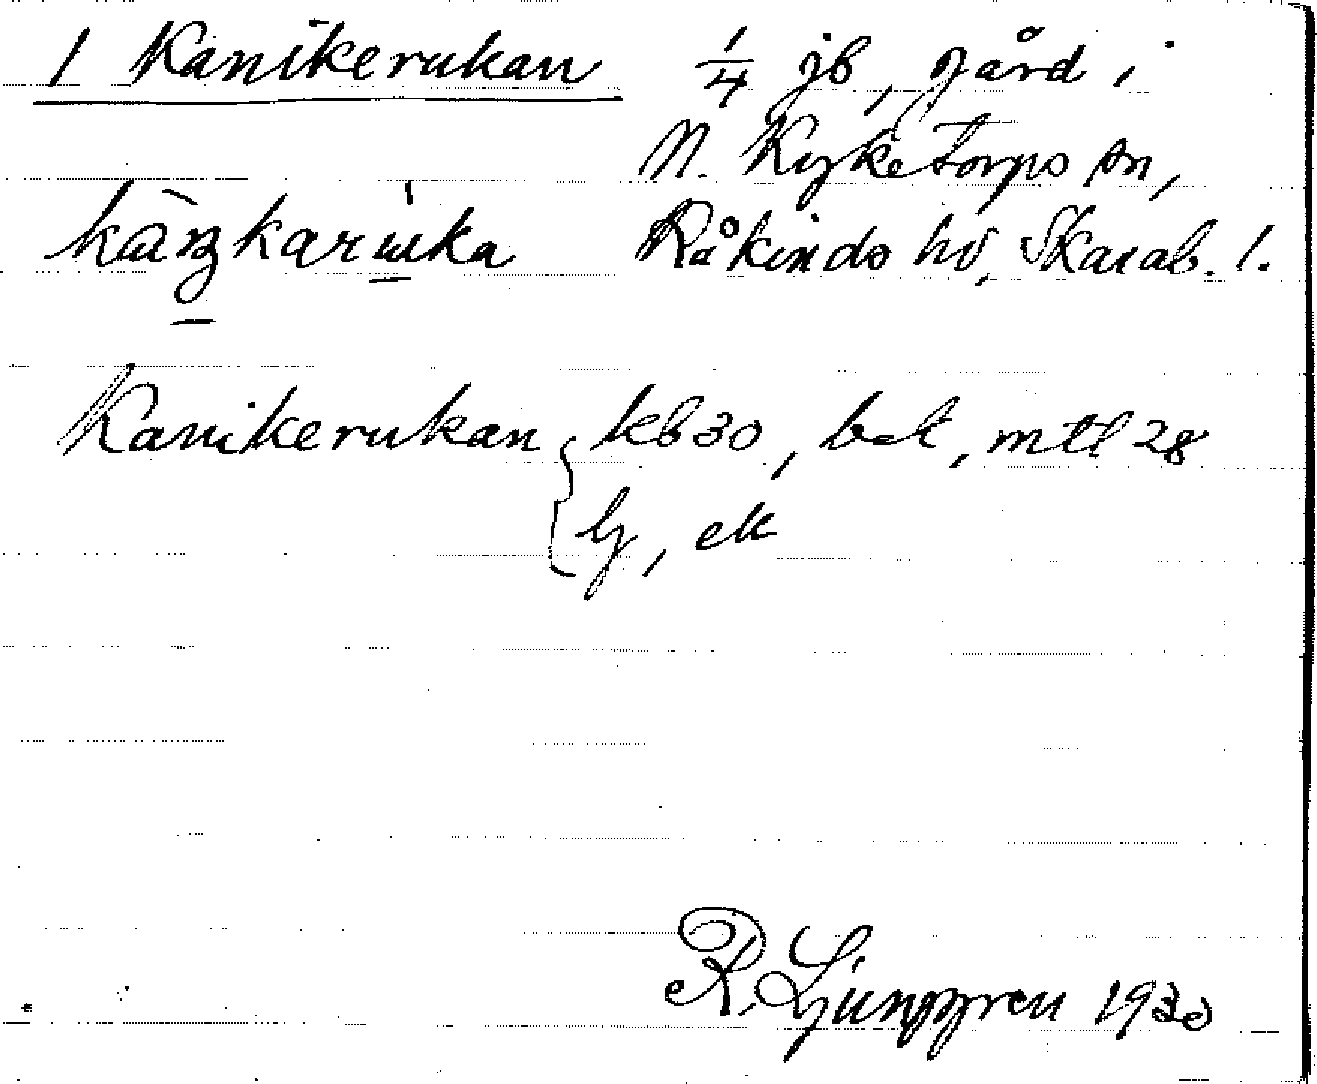 1 Kanikerukan 1/4 jb, gård i
N. Kyketorps sn,
Råkinds hd, Skarab. l.
Kanikerukan { kb 30, bet, mtl 28
lj, ek
R. Ljunggren 1930